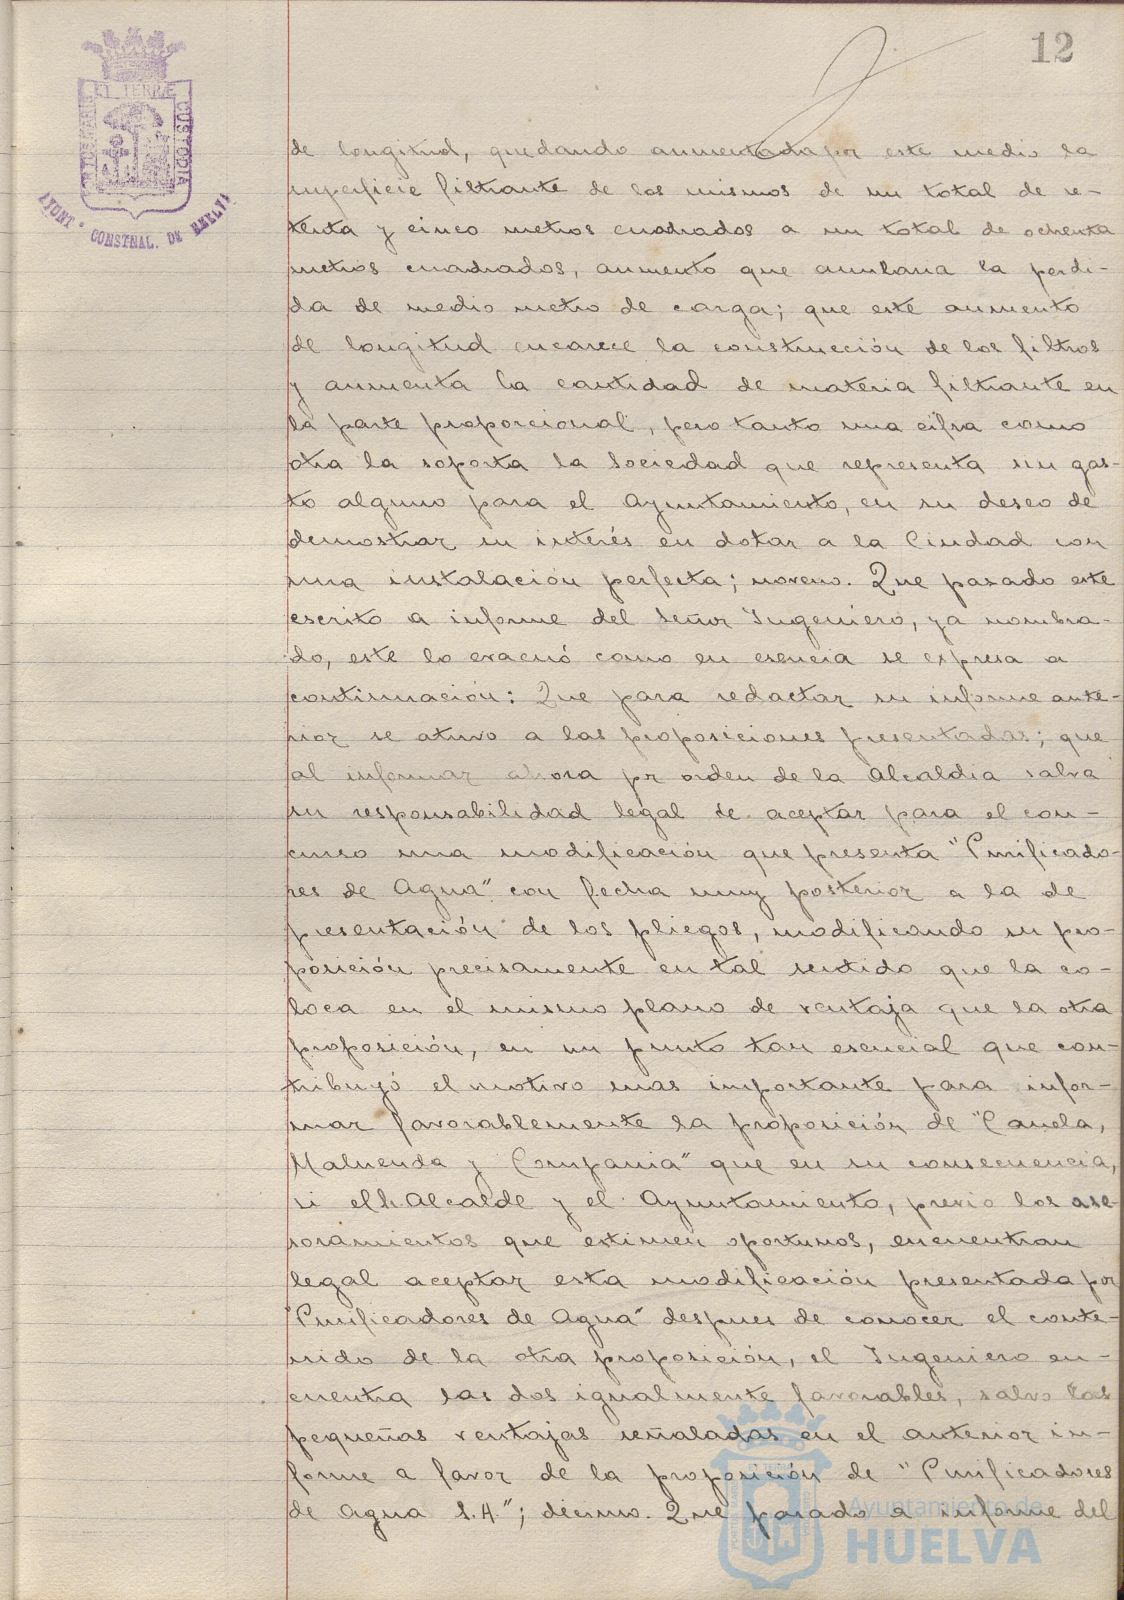 12
PORTUS MARIS ET TERRÆ CUSTODIA
AYUNT° CONSTNAL. DE HUELVA
de longitud, quedando aumentada por este medio la
superficie filtrante de los mismos de un total de se-
tenta y cinco metros cuadrados a un total de ochenta
metros cuadrados, aumento que anularia la perdi-
da de medio metro de carga; que este aumento
de longitud encarece la construcción de los filtros
y aumenta la cantidad de materia filtrante en
la parte proporcional, pero tanto una cifra como
otra la soporta la Sociedad que representa sin gas-
to alguno para el Ayuntamiento, en su deseo de
demostrar su interés en dotar a la Ciudad con
una instalación perfecta; noveno. Que pasado este
escrito a informe del Señor Ingeniero, ya nombra-
do, este lo evacuó como en esencia se expresa a
continuación: Que para redactar su informe ante-
rior se atuvo a las proposiciones presentadas; que
al informar ahora por orden de la Alcaldia salva
su responsabilidad legal de aceptar para el con-
curso una modificación que presenta "Purificado-
res de Agua" con fecha muy posterior a la de
presentación de los pliegos, modificando su pro-
posición precisamente en tal sentido que la co-
loca en el mismo plano de ventaja que la otra
proposición, en un punto tan esencial que con-
tribuyó el motivo mas importante para infor-
mar favorablemente la proposición de "Canela,
Maluenda y Compania" que en su consecuencia,
si el S. Alcalde y el Ayuntamiento, previo los ase-
soramientos que estimen oportunos, encuentran
legal aceptar esta modificación presentada por
"Purificadores de Agua" despues de conocer el conte-
nido de la otra proposición, el Ingeniero en-
cuentra las dos igualmente favorables, salvo las
pequeñas ventajas señaladas en el anterior in-
forme a favor de la proposición de "Purificadores
de Agua S.A."; décimo. Que pasado a informe del
Ayuntamiento de
HUELVA